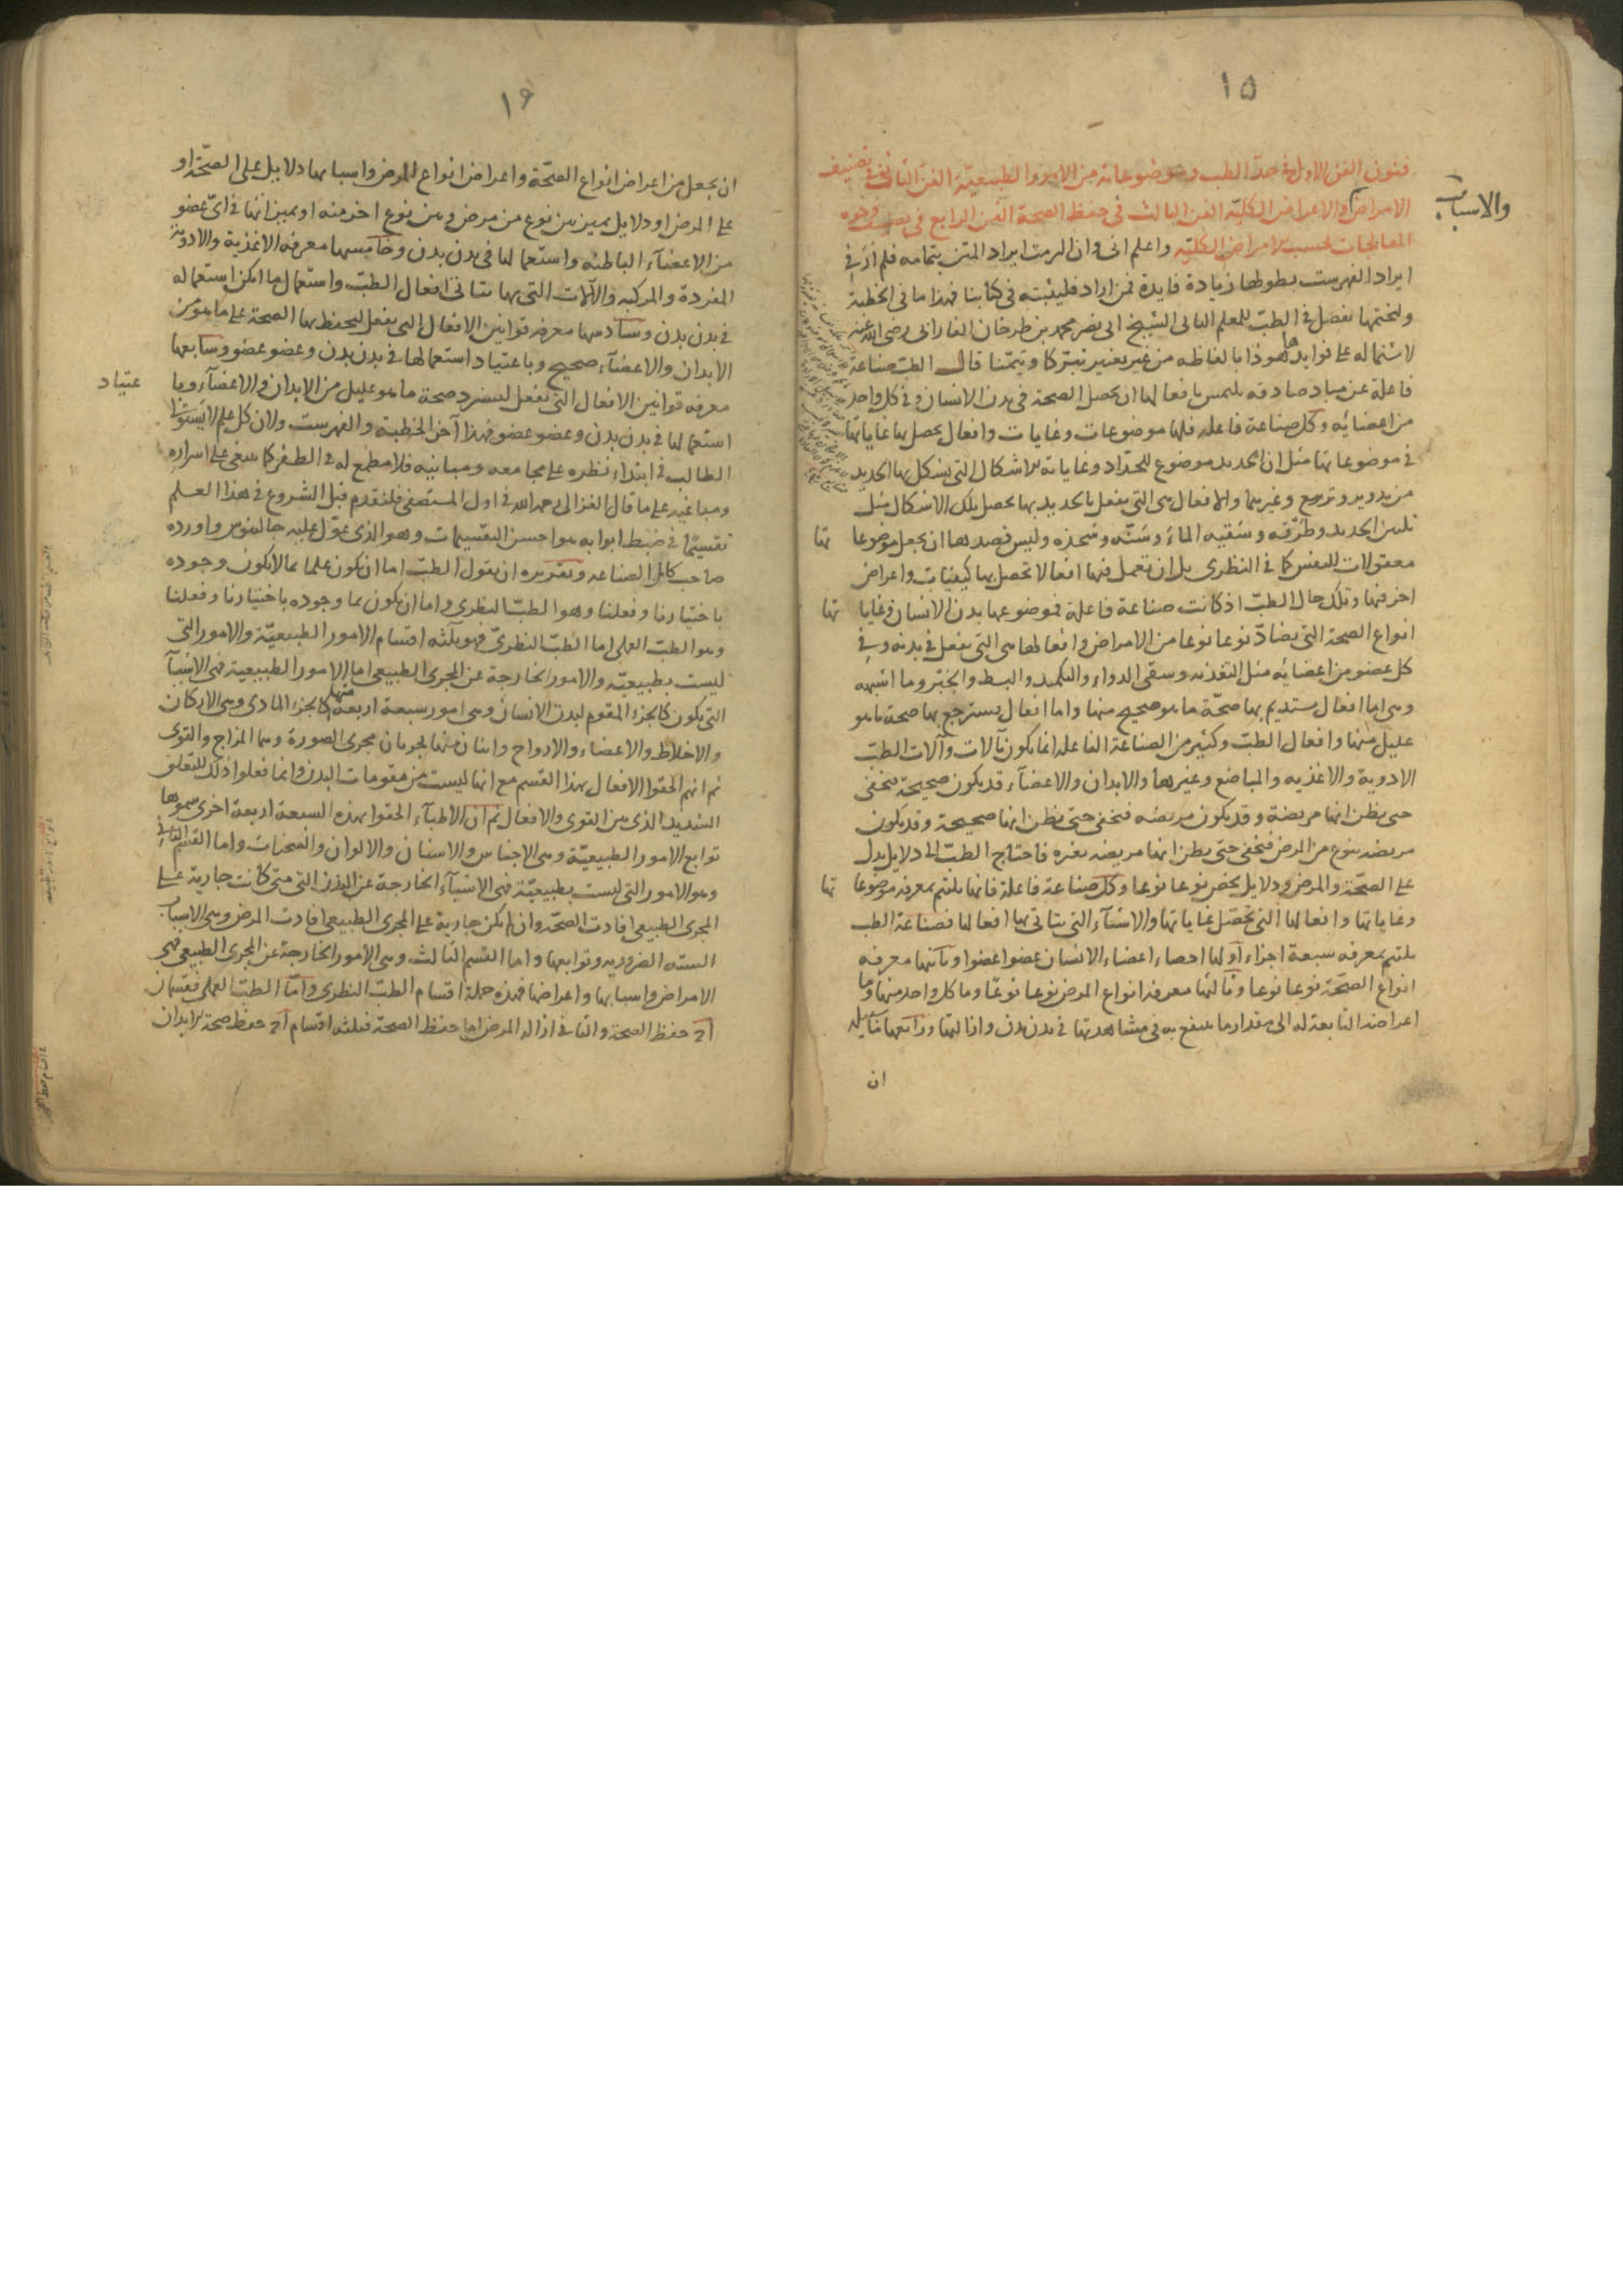 ١٥
فنون الفن الاول فى حد الطب وموضوعاته من الامور الطبيعية الفن الثانى فى تصنيف
الامراض والاعراض الكلية الفن الثالث فى حفظ الصحة الفن الرابع فى تصنيف وجوه
والاسباب
المعالجات بحسب الامراض الكلية واعلم انى وان التزمت ايراد المتن بتمامه فلم ار فى
ايراد الفهرست بطولها زيادة فايدة فمن اراد فليثبته فى كتابنا فهذا ما فى الخطبة
ولنختمها بفصل فى الطب للمعلم الثانى الشيخ ابى نصر محمد بن طرخان الفارابى رضى الله عنه
لاشتماله على فوايد ها هو ذا بالفاظه من غير تغيير تبركا وتيمنا قال الطب صناعة
فاعلة عن مباد صادقة يلتمس بافعالها ان يحصل الصحة فى بدن الانسان وفى كل واحد
من اعضائه وكل صناعة فاعله فلها موضوعات وغايات وافعال يحصل بها غاياتها
فى موضوعاتها مثل ان الحديد موضوع للحداد وغاياته الاشكال التى يشكل بها الحديد
من تدوير وتربيع وغيرهما والافعال هى التى يفعل بالحديد بها يحصل تلك الاشكال مثل
تليين الحديد وطرقه وسقيه الماء وسنّه وشحذه وليس قصدها ان يجعل موضوعا تها
معقولات للنفس كما فى النظرى بل ان تعمل فيها افعالا تحصل بها كيفيات واعراض
اخر فيها وتلك حال الطب اذ كانت صناعة فاعلة فموضوعها بدن الانسان وغايا تها
انواع الصحة التى يضاد نوعا نوعا من الامراض وافعالها هى التى يفعل فى بدنه وفى
كل عضو من اعضائه مثل التغذيه وسقى الدواء والتكميد والبط والجبر وما اشبهه
وهى اما افعال يستديم بها صحة ما هو صحيح منها واما افعال يسترجع بها صحة ما هو
عليل منها وافعال الطب وكثير من الصناعة الفاعله انما يكون بآلات وآلات الطب
الادوية والاغذيه والمباضع وغيرها والابدان والاعضاء قد يكون صحيحة فتخفى
حتى يظن انها مريضة وقد يكون مريضه فتخفى حتى يظن انها صحيحة وقد يكون
مريضه بنوع من المرض فتخفى حتى يظن انها مريضه بغيره فاحتاج الطب الى دلايل يدل
على الصحة والمرض ودلايل يخص نوعا نوعا وكل صناعة فاعلة فانها يلتئم بمعرفة موضوعا تها
وغاياتها وافعالها التى تحصل غاياتها والاشياء التى يتاتى بها افعالها فصناعة الطب
يلتئم بمعرفه سبعة اجزاء اولها احصاء اعضاء الانسان عضوا عضوا وثانيها معرفه
انواع الصحة نوعا نوعا وثالثها معرفة انواع المرض نوعا نوعا وما كل واحد منها وما
اعراضه التابعة له الى مقدار ما ينتفع به فى مشاهدتها فى بدن بدن وازالتها ورابعها
ان
١٦
ان يجعل من اعراض انواع الصحة واعراض انواع المرض واسبابها دلايل على الصحة او
على المرض او دلايل يميز بين نوع من مرض وبين نوع اخر منه او يميز انها فى اى عضو
من الاعضاء الباطنه واستعمالها فى بدن بدن وخامسها معرفه الاغذية والادوية
المفردة والمركبه والآلات التى بها يتاتى افعال الطب واستعمال ما امكن استعماله
فى بدن بدن وسادسها معرفه قوانين الافعال التى يفعل ليحفظ بها الصحة على ما هو من
الابدان والاعضاء صحيح وباعتياد استعمالها فى بدن بدن وعضو عضو وسابعها
معرفه قوانين الافعال التى تفعل ليسترد صحة ما هو عليل من الابدان والاعضاء وبا عتياد
استعمالها فى بدن بدن وعضو عضو فهذا آخر الخطبة والفهرست ولان كل علم لا يستولى
الطالب فى ابتداء نظره على مجامعه ومباينه فلا مطمع له فى الظفر كما ينبغى على اسراره
ومباغيه على ما قال الغزالى رحمه الله فى اول المستصفى فلنقدم قبل الشروع فى هذا العلم
تقسيما فى ضبط ابوابه هو احسن التقسيمات وهو الذى عول عليه جالينوس واورده
صاحب كامل الصناعه وتقريره ان يقول الطب اما ان يكون علما بما لا يكون وجوده
باختيارنا وفعلنا وهو الطب النظرى واما ان يكون بما وجوده باختيارنا وفعلنا
وهو الطب العملى اما الطب النظرى فهو ثلثه اقسام الامور الطبيعية والامور التى
ليست بطبيعيه والامور الخارجة عن المجرى الطبيعى اما الامور الطبيعية فهى الاشيآ
التى يكون كالجزء المقوم لبدن الانسان وهى امور سبعة اربعة منها كالجزء المادى وهى الاركان
والاخلاط والاعضاء والارواح واثنان منها يجريان مجرى الصورة وهما المزاج والقوى
ثم انهم الحقوا الافعال بهذا القسم مع انها ليست من مقومات البدن وانما فعلوا ذلك للتعلق
الشديد الذى بين القوى والافعال ثم ان الاطباء الحقوا بهذه السبعة اربعة اخرى سموها
توابع الامور الطبيعية وهى الاجناس والاسنان والالوان والسحنات واما القسم الثانى
وهو الامور التى ليست بطبيعية فهى الاشياء الخارجة عن البدن التى متى كانت جارية على
المجرى الطبيعى افادت الصحة وان لم يكن جارية على المجرى الطبيعى افادت المرض وهى الاسباب
الستة الضروريه وتوابعها واما القسم الثالث وهى الامور الخارجة عن المجرى الطبيعى فهى
الامراض واسبابها واعراضها فهذه جملة اقسام الطب النظرى واما الطب العملى فقسمان
آ حفظ الصحة والثانى ازاله المرض اما حفظ الصحة فثلثه اقسام آ حفظ صحة الابدان